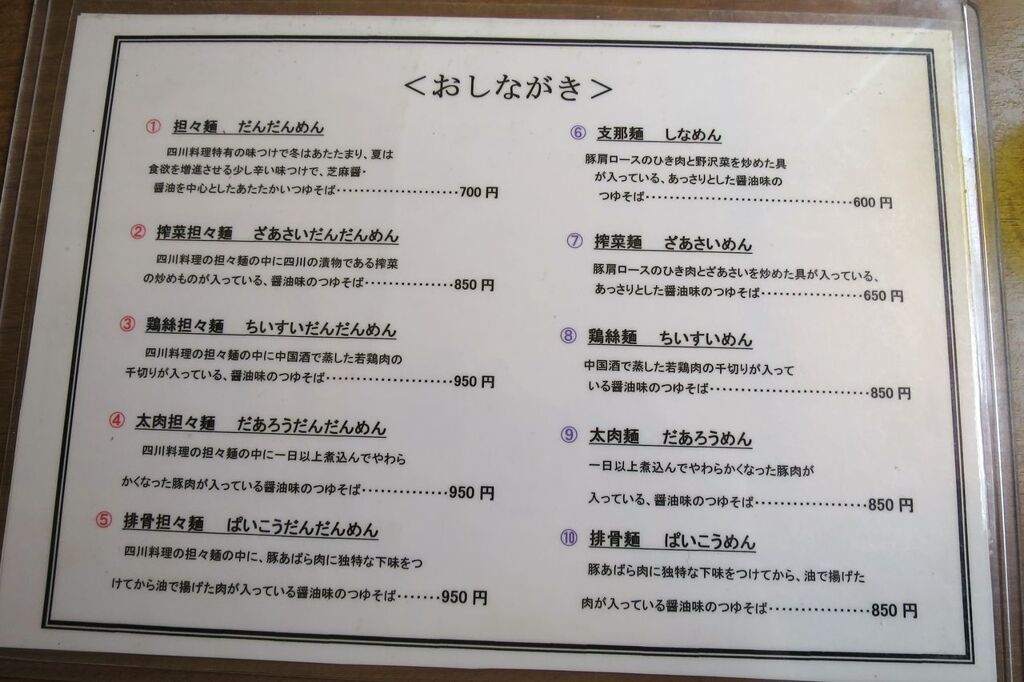 ＜おしながき＞
① 担々麺　だんだんめん
四川料理特有の味つけで冬はあたたまり、夏は
食欲を増進させる少し辛い味つけで、芝麻醤・
醤油を中心としたあたたかいつゆそば･････････････････････700 円
② 搾菜担々麺　ざあさいだんだんめん
四川料理の担々麺の中に四川の漬物である搾菜
の炒めものが入っている、醤油味のつゆそば･･･････････････850 円
③ 鶏絲担々麺　ちいすいだんだんめん
四川料理の担々麺の中に中国酒で蒸した若鶏肉の
千切りが入っている、醤油味のつゆそば･････････････････････950 円
④ 太肉担々麺　だあろうだんだんめん
四川料理の担々麺の中に一日以上煮込んでやわら
かくなった豚肉が入っている醤油味のつゆそば･･････････････950 円
⑤ 排骨担々麺　ぱいこうだんだんめん
四川料理の担々麺の中に、豚あばら肉に独特な下味をつ
けてから油で揚げた肉が入っている醤油味のつゆそば･･･････950 円
⑥ 支那麺　しなめん
豚肩ロースのひき肉と野沢菜を炒めた具
が入っている、あっさりとした醤油味の
つゆそば････････････････････････････････････600 円
⑦ 搾菜麺　ざあさいめん
豚肩ロースのひき肉とざあさいを炒めた具が入っている、
あっさりとした醤油味のつゆそば･････････････････650 円
⑧ 鶏絲麺　ちいすいめん
中国酒で蒸した若鶏肉の千切りが入って
いる醤油味のつゆそば･･････････････････････････850 円
⑨ 太肉麺　だあろうめん
一日以上煮込んでやわらかくなった豚肉が
入っている、醤油味のつゆそば････････････････････850 円
⑩ 排骨麺　ぱいこうめん
豚あばら肉に独特な下味をつけてから、油で揚げた
肉が入っている醤油味のつゆそば･････････････････850 円